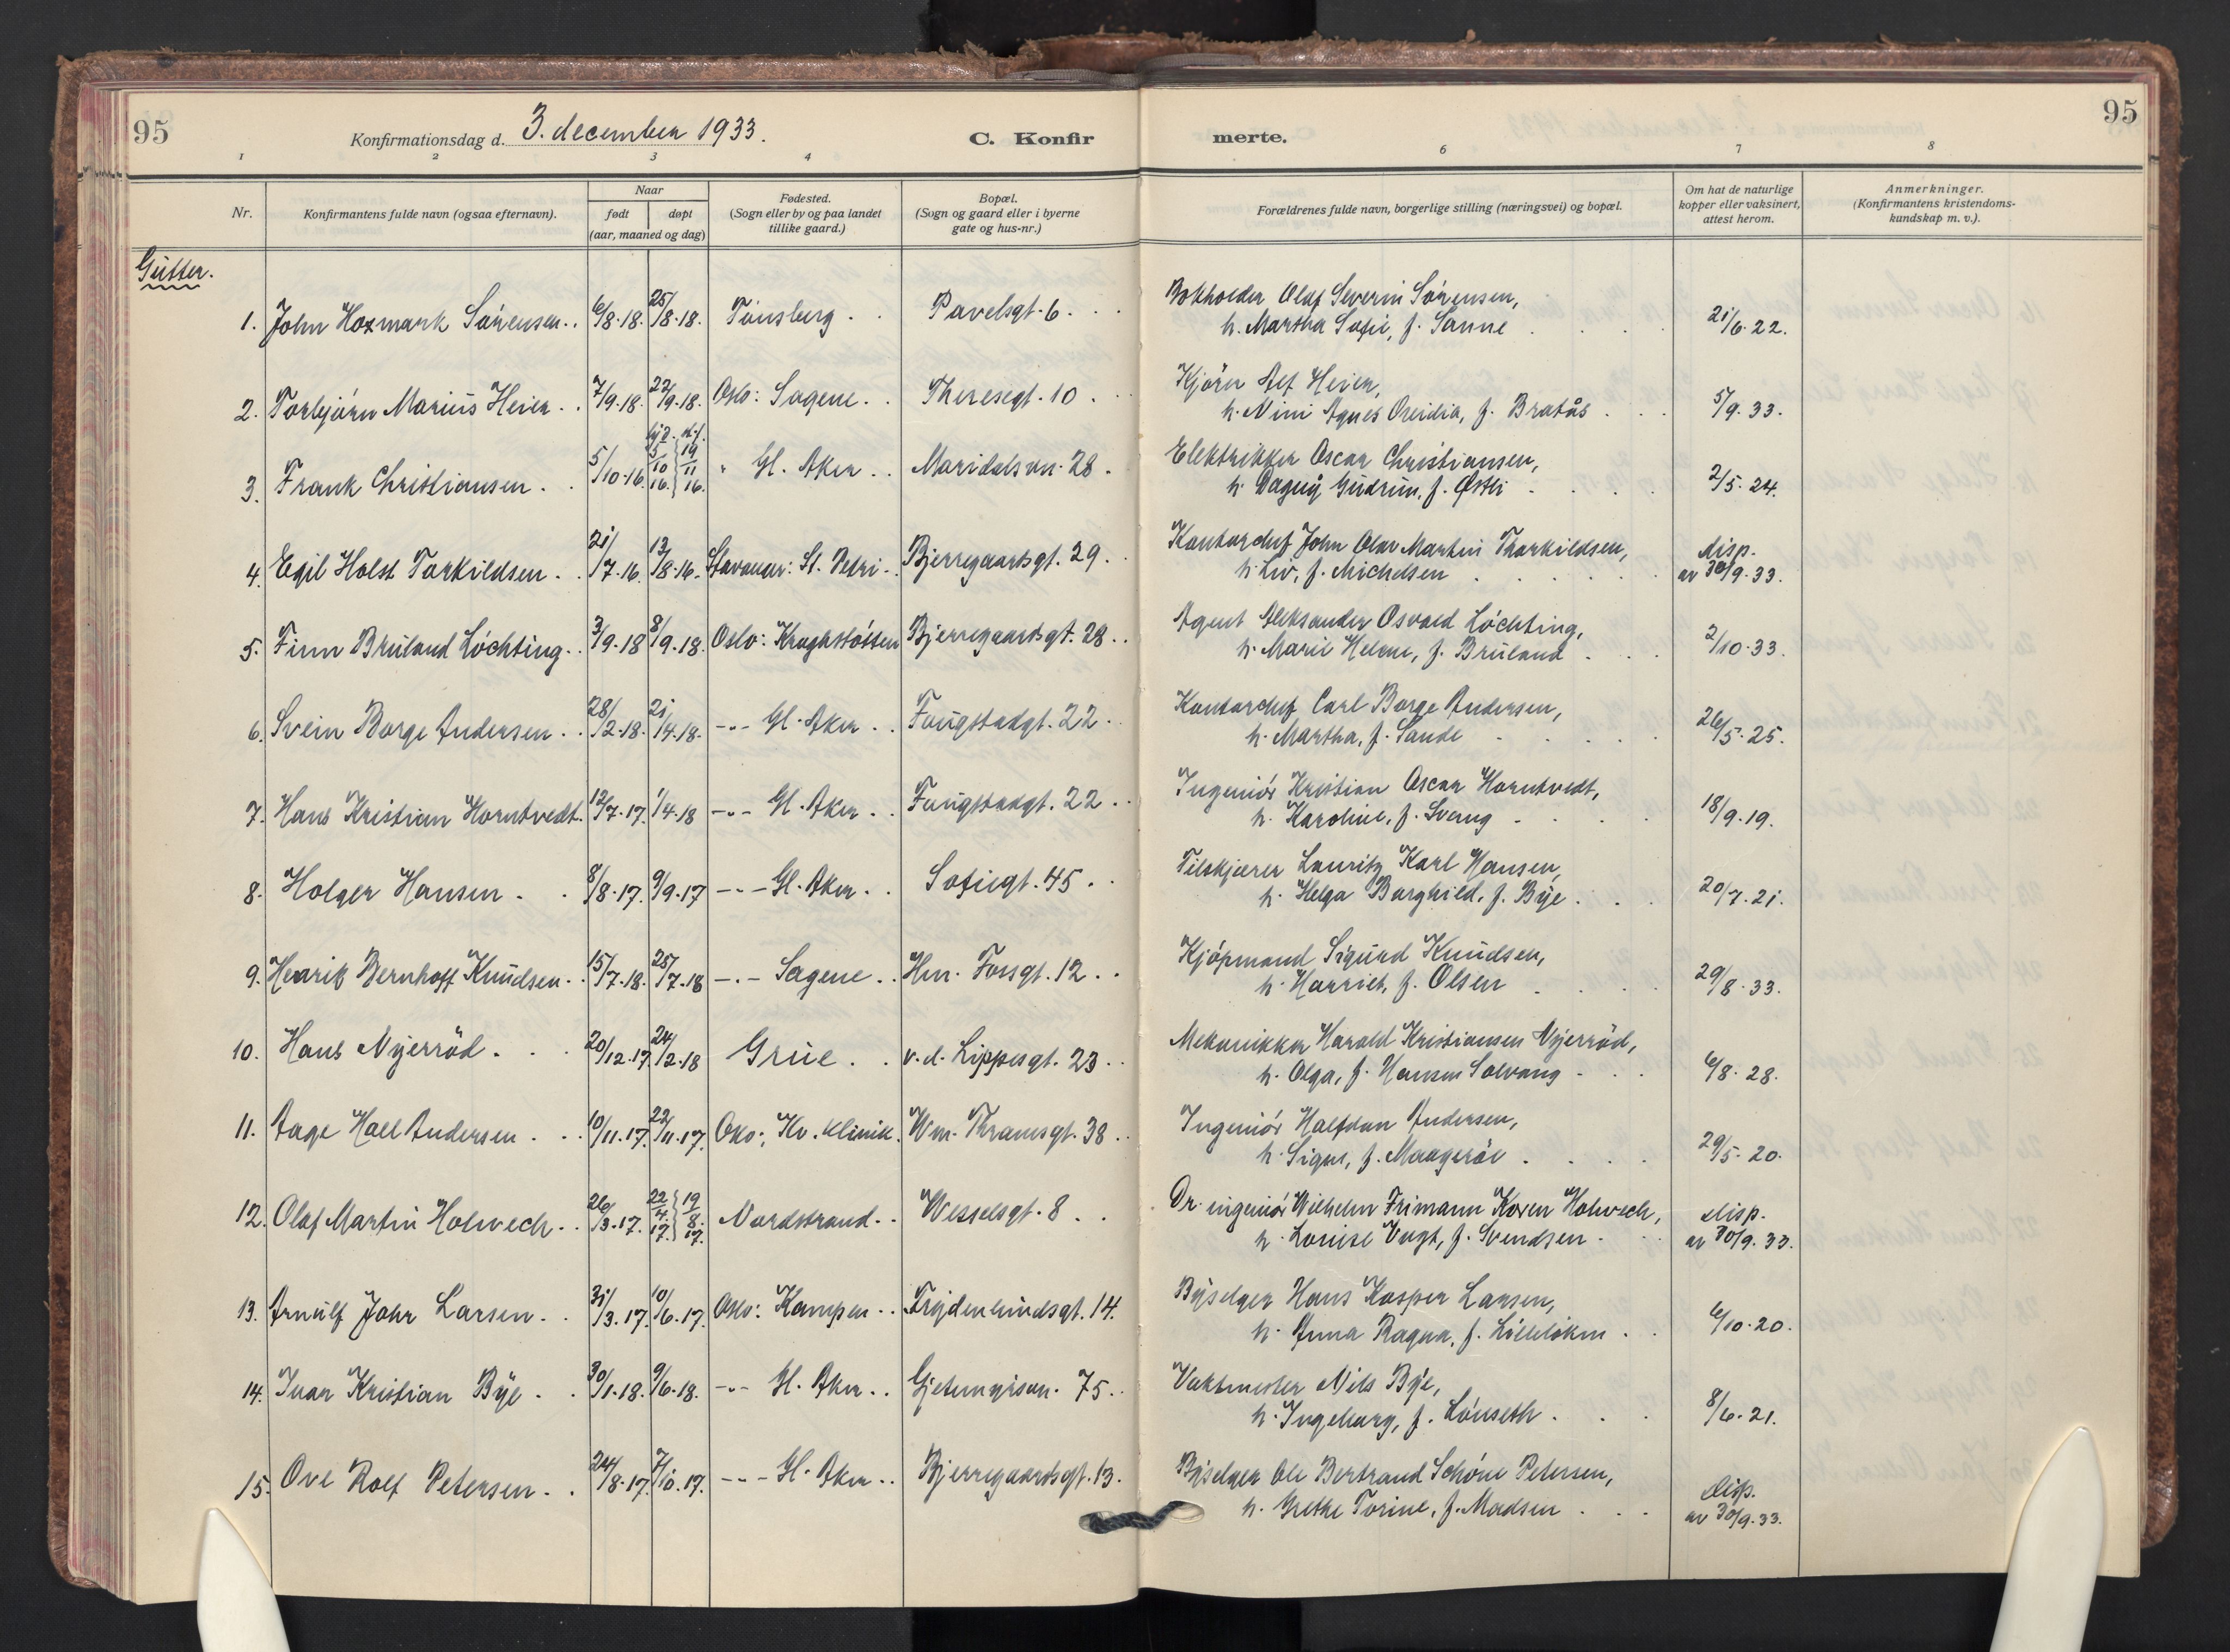 95
Konfirmationsdag d. 3. december 1933.
C. Konfir
merte.
95
1 2 3 4 6 7 8
Nr.
Konfirmantens fulde navn (ogsaa efternavn).
Naar
født døpt
(aar, maaned og dag)
Fødested.
(Sogn eller by og paa landet
tillike gaard.)
Bopæl.
(Sogn og gaard eller i byerne
gate og hus-nr.)
Forældrenes fulde navn, borgerlige stilling (næringsvei) og bopæl.
Om hat de naturlige
kopper eller vaksinert,
attest herom.
Anmerkninger.
(Konfirmantens kristendoms-
kundskap m. v.).
Gutter.
1. John Hoxmark Sörensen. 6/8.18. 25/8.18. Tönsberg. Pavelsgt. 6. Bokholder Olaf Severin Sörensen,
h. Martha Sofie, f. Sanne 21/6.22.
2. Torbjörn Marius Heier. 7/9.18. 22/9.18. Oslo: Sagene. Theresegt. 10. Kjörer Alf Heier,
h. Nini Agnes Oveidia, f. Bratås 5/9.33.
3. Frank Christiansen. 5/10.16. hj.d. 5/10 16. st.f. 19/11 16. " Gl. Aker. Maridalsvn. 28. Elektrikker Oscar Christiansen,
h. Dagny Gudrun, f. Østli 2/5.24.
4. Egil Holst Torkildsen. 21/7.16. 13/8.16. Stavanger: St. Petri. Bjerregaardsgt. 29. Kontorchef John Olav Martin Thorkildsen,
h. Liv, f. Michelsen disp.
av 30/9.33.
5. Finn Bruland Löchting. 3/9.18 8/9.18. Oslo: Kroghstötten Bjerregaardsgt. 28. Agent Aleksander Osvald Löchting,
h. Marie Helene, f. Bruland 2/10.33.
6. Svein Borge Andersen. 28/2.18. 21/4.18. -"- Gl. Aker. Faugstadgt. 22. Kontorchef Carl Borge Andersen,
h. Martha, f. Sande 26/5.25.
7. Hans Kristian Horntvedt. 12/7.17. 1/4.18 -"- Gl. Aker. Faugstadgt. 22. Ingeniör Kristian Oscar Horntvedt,
h. Karoline, f. Svang 18/9.19.
8. Holger Hansen. 8/8.17. 9/9.17 -"- Gl. Aker. Sofiegt. 45. Tilskjærer Lauritz Karl Hansen,
h. Helga Borghild, f. Bye. 20/7.21.
9. Henrik Bernhoff Knudsen. 15/7.18. 25/7.18 -"- Sagene. Hm. Fossgt. 12. Kjöpmand Sigurd Knudsen,
h. Harriet, f. Olsen 29/8.33.
10. Hans Nyerröd. 20/12.17. 24/2.18 Grue. v. d. Lippesgt. 23. Mekanikker Harald Kristiansen Nyerröd,
h. Olga, f. Hansen Solvang 6/8.28.
11. Aage Hall Andersen. 10/11.17. 22/11.17. Oslo: Kv. klinik. Wm. Thranesgt. 38. Ingeniör Halfdan Andersen,
h. Signe, f. Maageröe. 29/5.20.
12. Olaf Martin Holwech. 26/3.17. 22/4. 17. 19/8. 17. Nordstrand. Wesselsgt. 8. Dr. ingeniör Wilhelm Frimann Koren Holwech,
h. Louise Vogt, f. Svendsen. disp.
av 30/9.33.
13. Arnulf Johr Larsen. 31/3.17. 10/6.17. Oslo: Kampen. Frydenlundsgt. 14. Byselger Hans Kasper Larsen,
h. Anna Ragna, f. Lilleløken. 6/10.20.
14. Ivar Kristian Bye. 30/1.18. 9/6.18. -"- Gl. Aker. Gjetemyrsvn. 75. Vaktmester Nils Bye,
h. Ingeborg, f. Lönseth. 8/6.21.
15. Ove Rolf Petersen. 24/8.17. 7/10.17. -"- Gl. Aker. Bjerregaardsgt. 13. Byselger Ole Bertrand Schöne Petersen,
h. Grethe Torine, f. Madsen disp.
av 30/9.33.